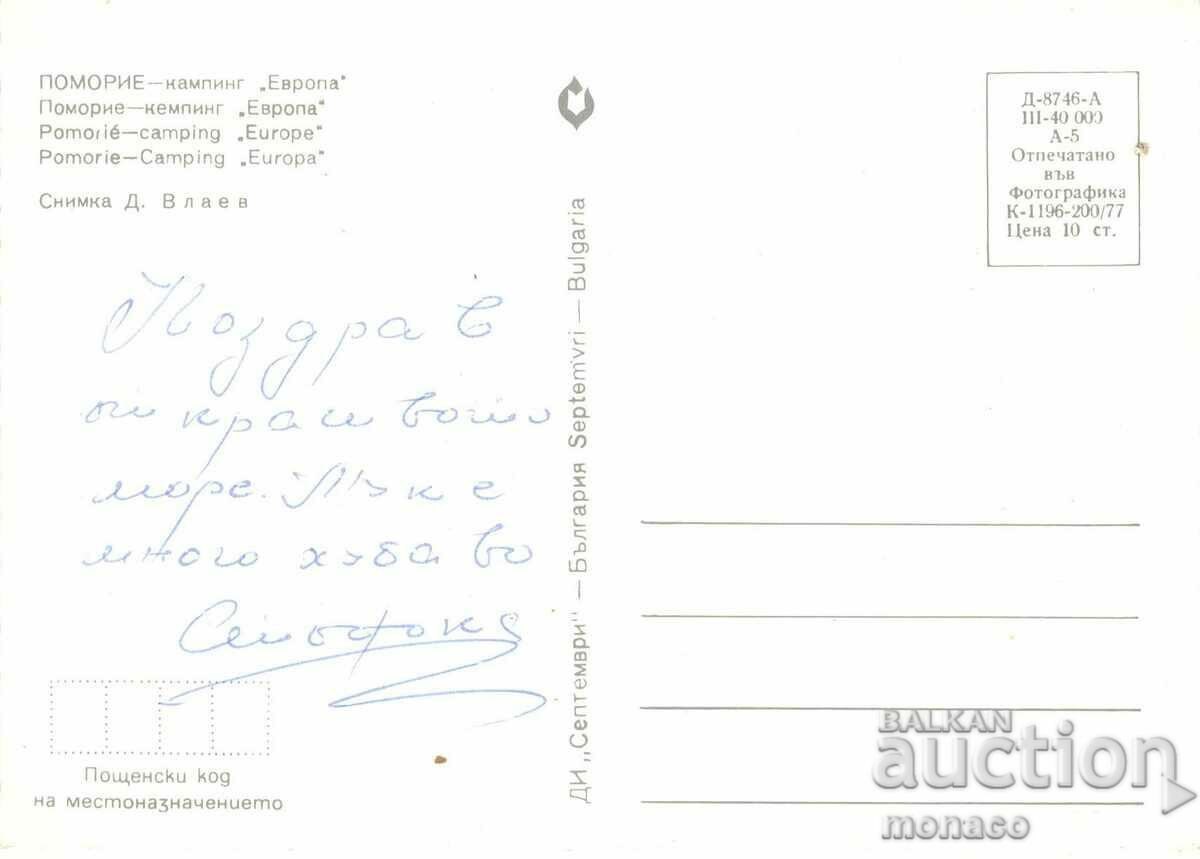 ПОМОРИЕ—кампинг „Европа"
Поморие—кемпинг „Европа"
Pomorié—camping „Europe"
Pomorie—Camping „Europa"
Снимка Д. Влаев
Д-8746-А
III-40 000
А-5
Отпечатано
във
Фотографика
К-1196-200/77
Цена 10 ст.
Поздрав
от красивото
море. Тук е
много хубаво
ДИ „Септември" — България Septemvri — Bulgaria
Пощенски код
на местоназначението
BALKAN
auction
monaco